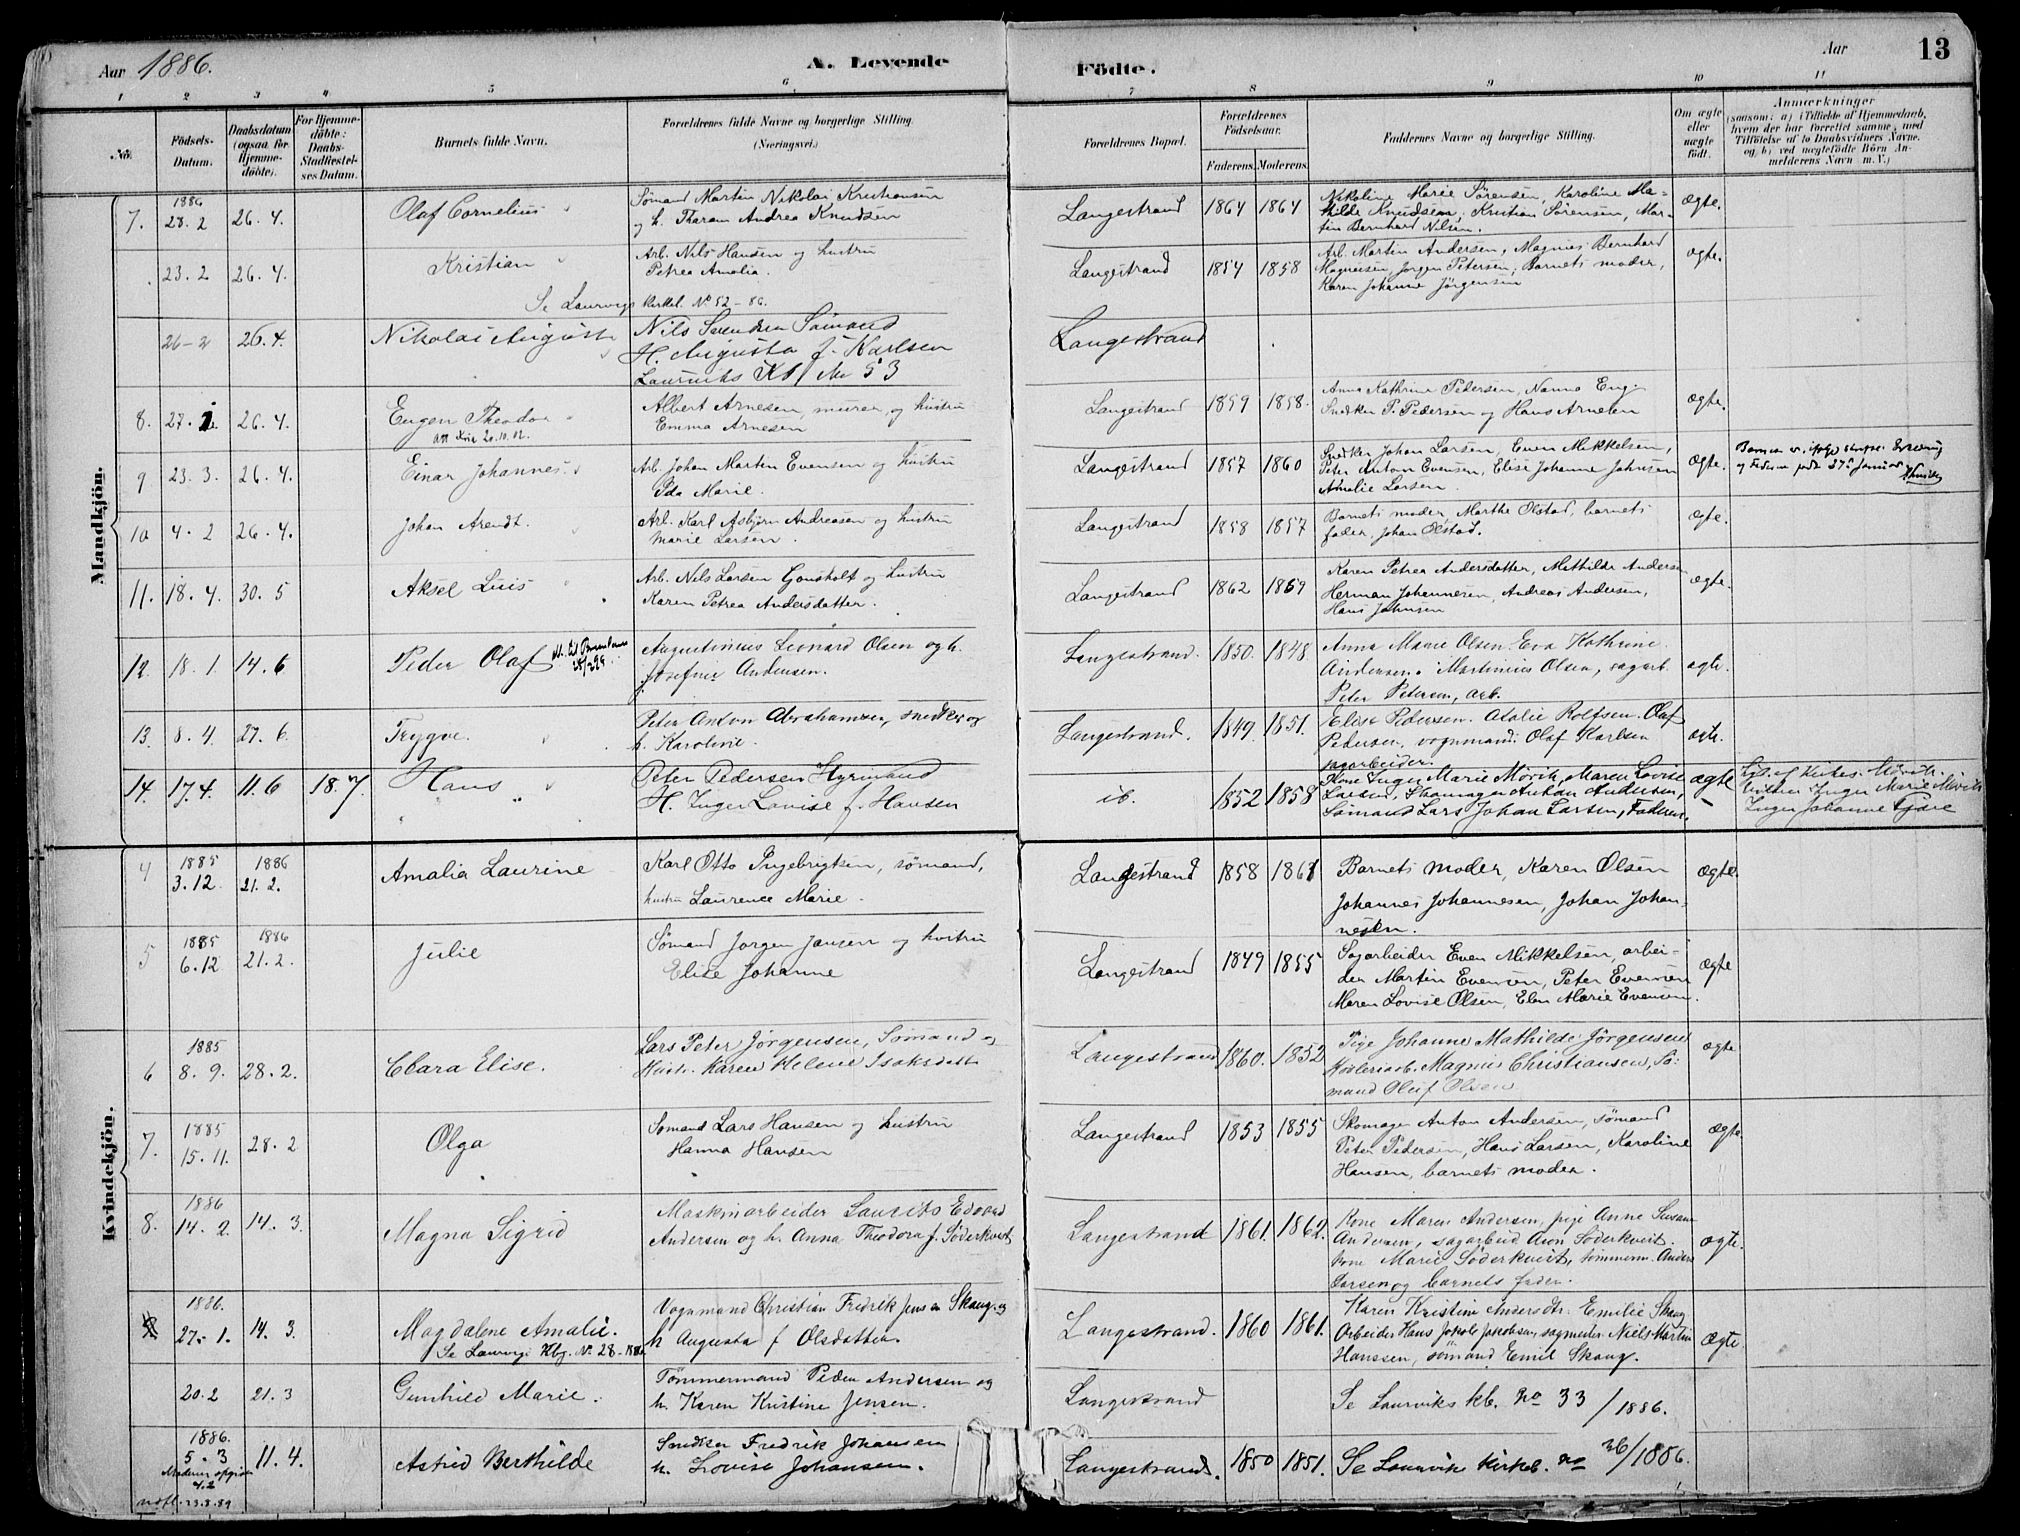 Aar 1886. A. Levende Födte. Aar 13
1 2 3 4 5 6 7 8 9 10 11
No. Födsels-Datum. Daabsdatum (ogsaa for Hjemmedöbte). For Hjemmedöbte: Daabs-Stadfæstelses Datum. Barnets fulde Navn. Forældrenes fulde Navne og borgerlige Stilling. (Næringsvei.) Forældrenes Bopæl. Forældrenes Födselsaar. Faderens. Moderens. Faddernes Navne og borgerlige Stilling. Om ægte eller uægte födt. Anmærkninger (saasom: a) i Tilfælde af Hjemmedaab, hvem der har forrettet samme, med Tilföielse af to Daabsvidners Navne. og b) ved uægtefödte Börn Anmelderens Navn m. V.)
Mandkjön.
7. 1886 28.2 26.4. Olaf Cornelius Sømand Martin Nikolai Kristiansen
og h. Tharan Andrea Knudsen
Langestrand 1864 1864 Nikoline Marie Sørensen, Karoline Ma-
thilde Knudsen, Kristian Sørensen, Mar-
tin Bernhard Nilsen. ægte.
23.2 26.4. Kristian Arb. Nils Hansen og hustru
Petrea Amalia.
Se Laurvigs kirkeb. No 52-86.
Langestrand 1854 1858 Arb. Martin Andersen, Magnus Bernhard
Magnusen, Jørgen Petersen, Barnets moder,
Karen Johanne Jörgensen ægte.
26-2 26.4. Nikolai August Nils Svendsen Sømand
H. Augusta f. Karlsen
Laurviks Kb. No 53
Langestrand
8. 27. 26.4. Eugen Theodor Albert Arnesen, murer, og hustru
Emma Arnesen
att. 20.10.02.
Langestrand 1859 1858. Anna Kathrine Pedersen, Nanna Eng.
Snedker P. Pedersen og Hans Arnesen ægte.
9 23.3. 26.4. Einar Johannes Arb. Johan Martin Evensen og hustru
Ida Marie.
Langestrand 1857 1860 Snedker Johan Larsen, Even Mikkelsen,
Peter Anton Evensen, Elise Johanne Johnsen
Amalie Larsen. ægte.
10 4.2 26.4. Johan Arendt. Arb. Karl Asbjørn Andreasen og hustru
Marie Larsen.
Langestrand 1858 1857 Barnets moder, Marthe Olstad, barnets
fader, Johan Olstad. ægte.
11. 18.4. 30.5 Aksel Luis Arb. Nils Larsen Gonsholt og hustru
Karen Petrea Andersdatter.
Langestrand 1862 1869 Karen Petrea Andersdatter, Mathilde Andersen
Herman Johannesen, Andreas Andersen,
Hans Johnsen ægte.
12. 18.1. 14.6 Peder Olaf Augustinius Leonard Olsen og h.
Josefine Andersen.
Langestrand. 1850. 1848. Anna Marie Olsen. Eva Kathrine
Andersen. Martinius Olsen, sagarb.
Peter Petersen, arb. ægte.
13. 8.4. 27.6. Trygve. Peter Anton Abrahamsen, snedker og
h. Karoline.
Langestrand. 1849. 1851. Elise Pedersen. Atalie Rolfsen. Olaf
Pedersen, vognmand. Olaf Karlsen
sagarbeider. ægte.
14. 17.4. 11.6 18.7 Hans Peter Pedersen
H. Inger Lovise f. Hansen
ib. 1852 1858 Kone Inger Marie Mörik, Maren Lovise
Larsen, Skomager Anton Andersen,
Sømand Lars Johan Larsen, Faderen. ægte
Inger Marie Mörik
Inger Johanne
Kvindekjön.
4 1885 3.12. 1886 21.2. Amalia Laurine Karl Otto Ingebrigtsen, sømand,
hustru Laurence Marie.
Langestrand 1858 1861 Barnets moder, Karen Olsen
Johannes Johannesen, Johan Johan-
nesen. ægte.
5 1885 6.12 1886 21.2. Julie Sömand Jørgen Jansen og hustru
Elise Johanne
Langestrand 1849 1855 Sagarbeider Even Mikkelsen, arbei-
der Martin Evensen, Peter Evensen
Maren Lovise Olsen, Elen Marie Evensen. ægte
6 1885 8.9. 28.2. Clara Elise. Lars Peter Jørgensen, Sømand og
Hustr. Karen Helene Isaksdatt
Langestrand 1860. 1852 Pige Johanne Mathilde Jörgensen
Høvleriarb. Magnus Christiansen, Sø-
mand Oluf Olsen ægte
7. 1885 15.11. 28.2 Olga Sømand Lars Hansen og hustru
Hanna Hansen
Langestrand 1853 1855 Skomager Anton Andersen, sømand
Peter Pedersen, Hans Larsen, Karoline
Hansen, barnets moder. ægte.
8. 1886 14.2. 14.3. Magna Sigrid Maskinarbeider Laurits Edvard
Andersen og h. Anna Theodora f. Söderkvist
Langestrand 1861. 1862. Kone Maren Andersen, pige Anne Susan
Andersen, sagarbeid Aron Söderkvist.
kone Marie Söderkvist, tömmerm. Anders
Larsen og barnets fader. ægte.
1886. 27.1. 14.3. Magdalene Amalie. Vognmand Christian Fredrik Jensen Skaug. og
h Augusta f Olsdatter.
Se Laurvigs Kbg. No 28-1886
Langestrand. 1860 1861. Karen Kristine Andersdtr. Emilie Skaug
Arbeider Hans Jakob Jakobsen, sagmester Niels Martin
Hanssen, sømand Emil Skaug. ægte
20.2 21.3 Gunhild Marie. Tømmermand Peder Andersen og
h. Karen Kristine Jensen.
Langestrand Se Laurviks kb. no 33 / 1886.
1886. 5.3 11.4. Astrid Berthilde Snedker Fredrik Johansen
h. Lovise Johansen.
Moderen opgiver
4.2
Langestrand. 1850 1851. Se Laurvik kirkeb. no 36/1886.